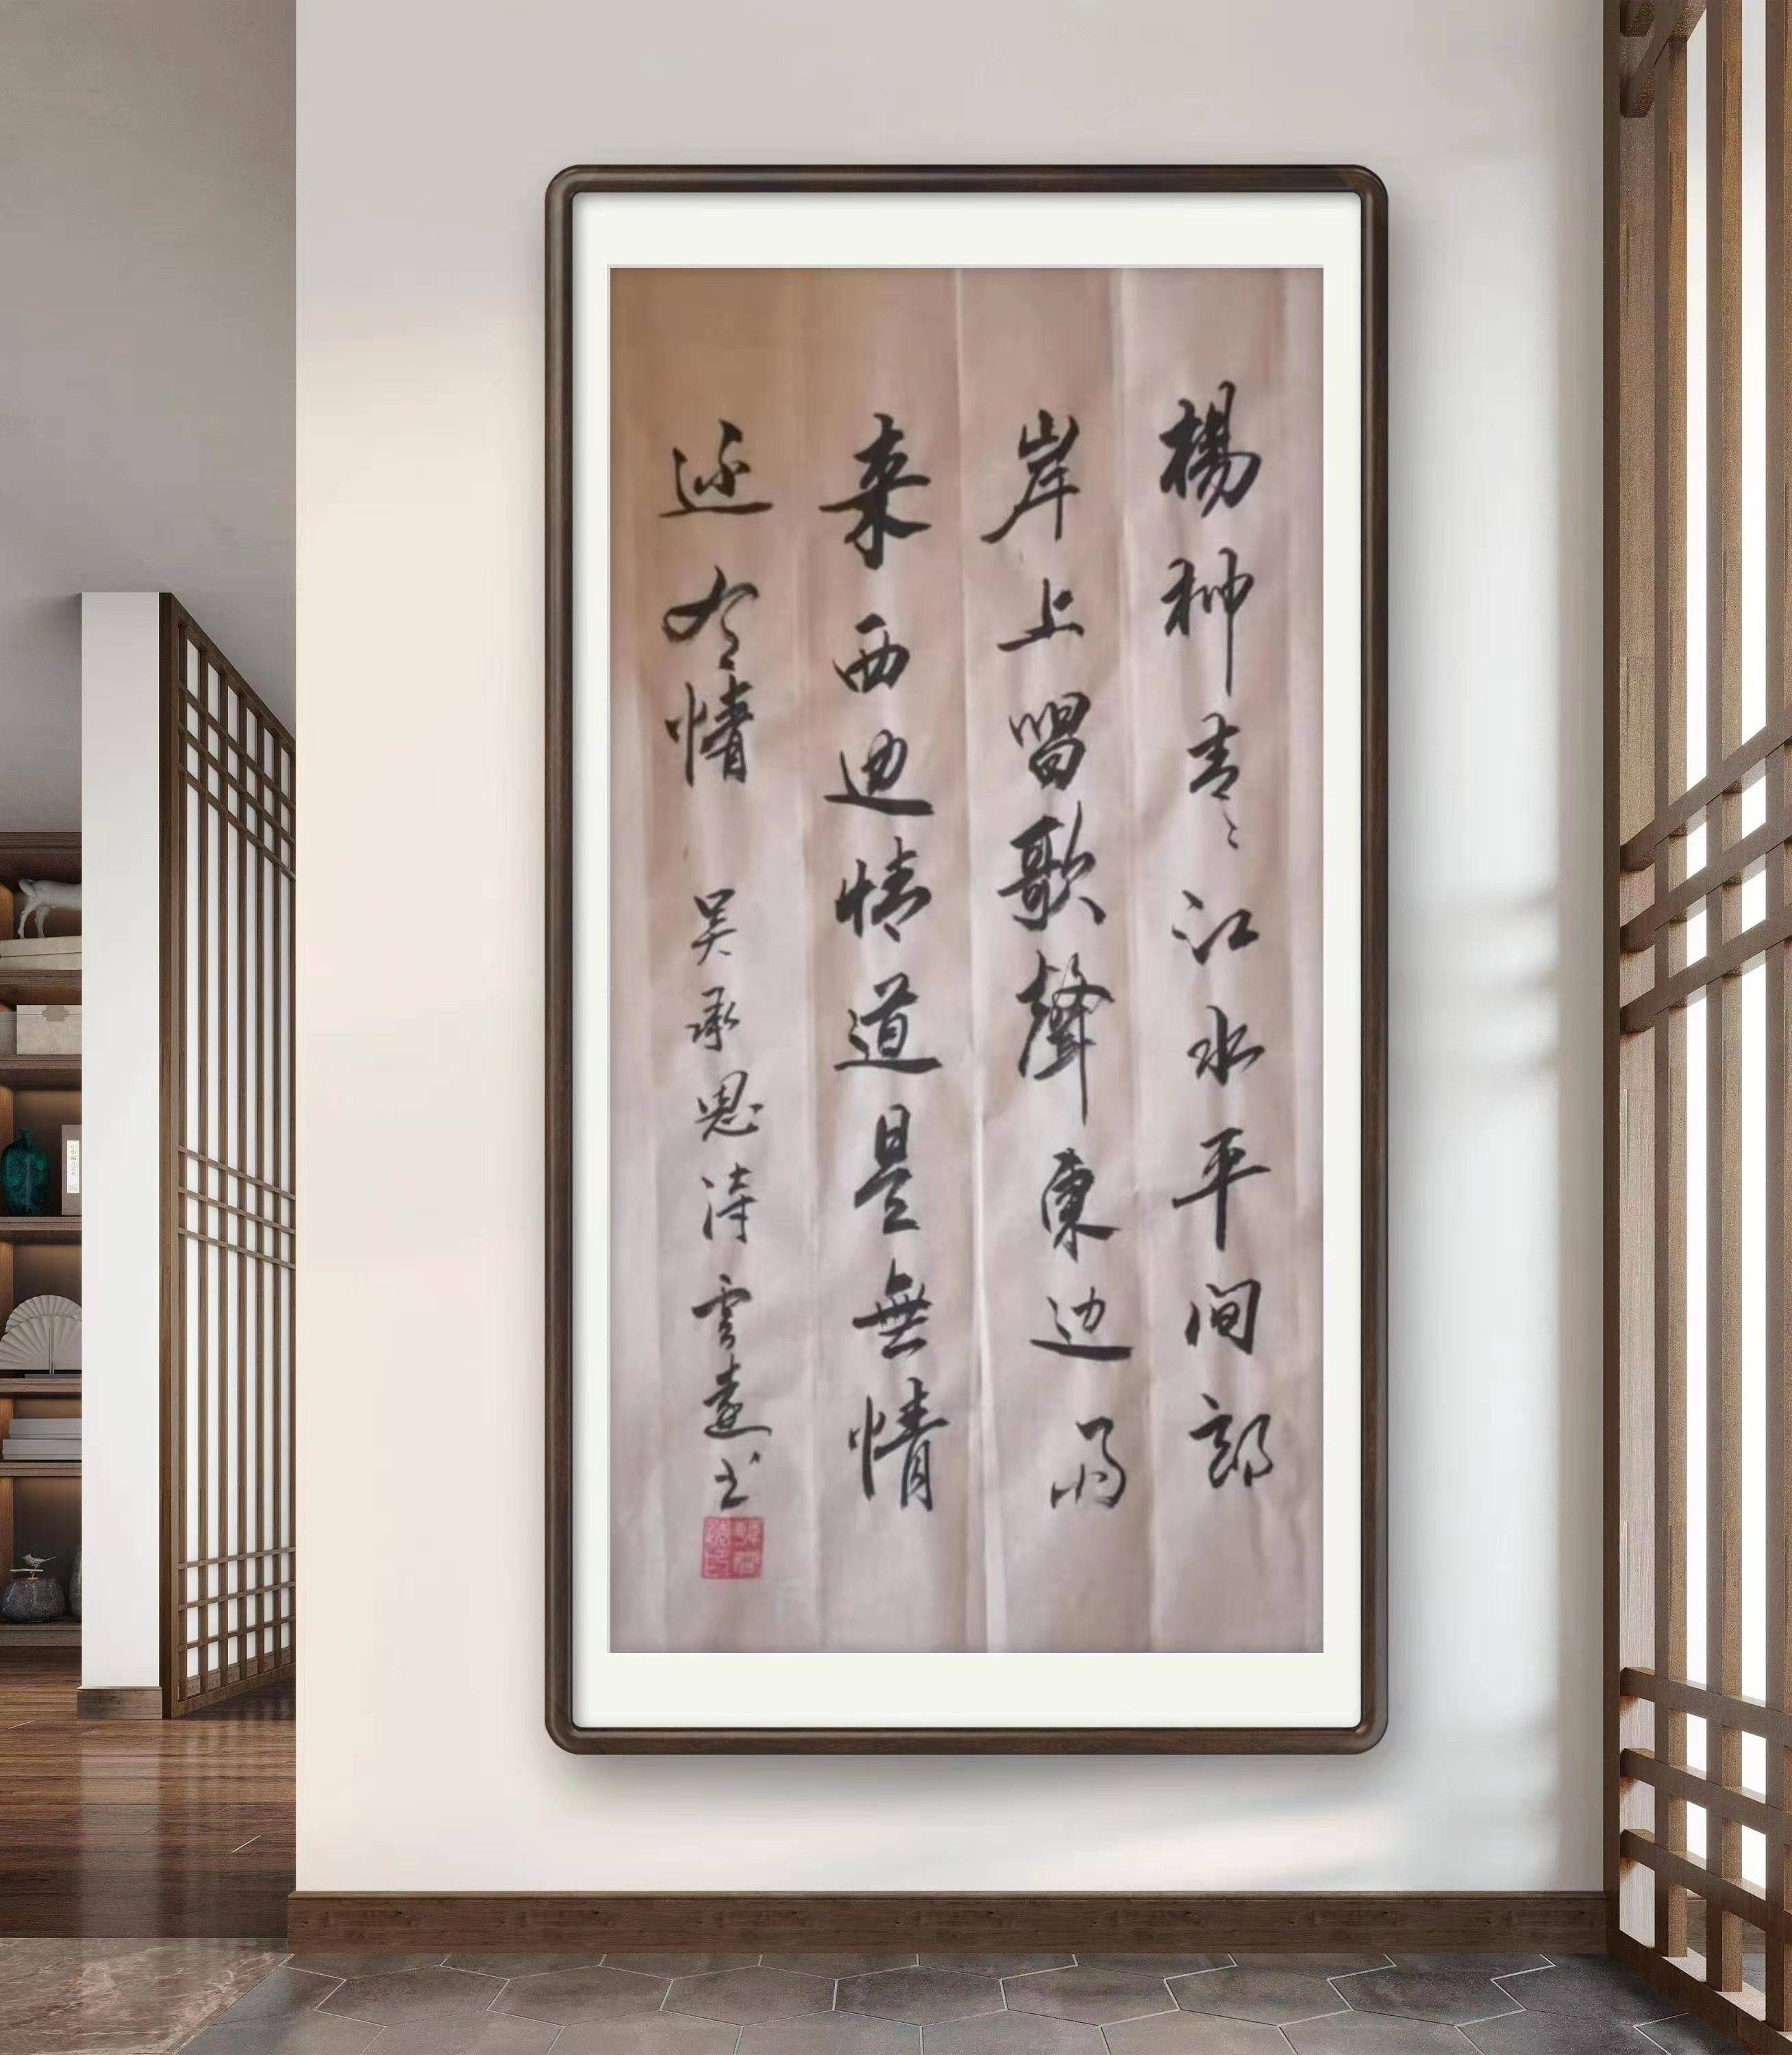 楊柳青〻江水平闻郎
岸上唱歌聲東边雨
来西边情道是無情
还有情 吴承恩詩 雲遠书